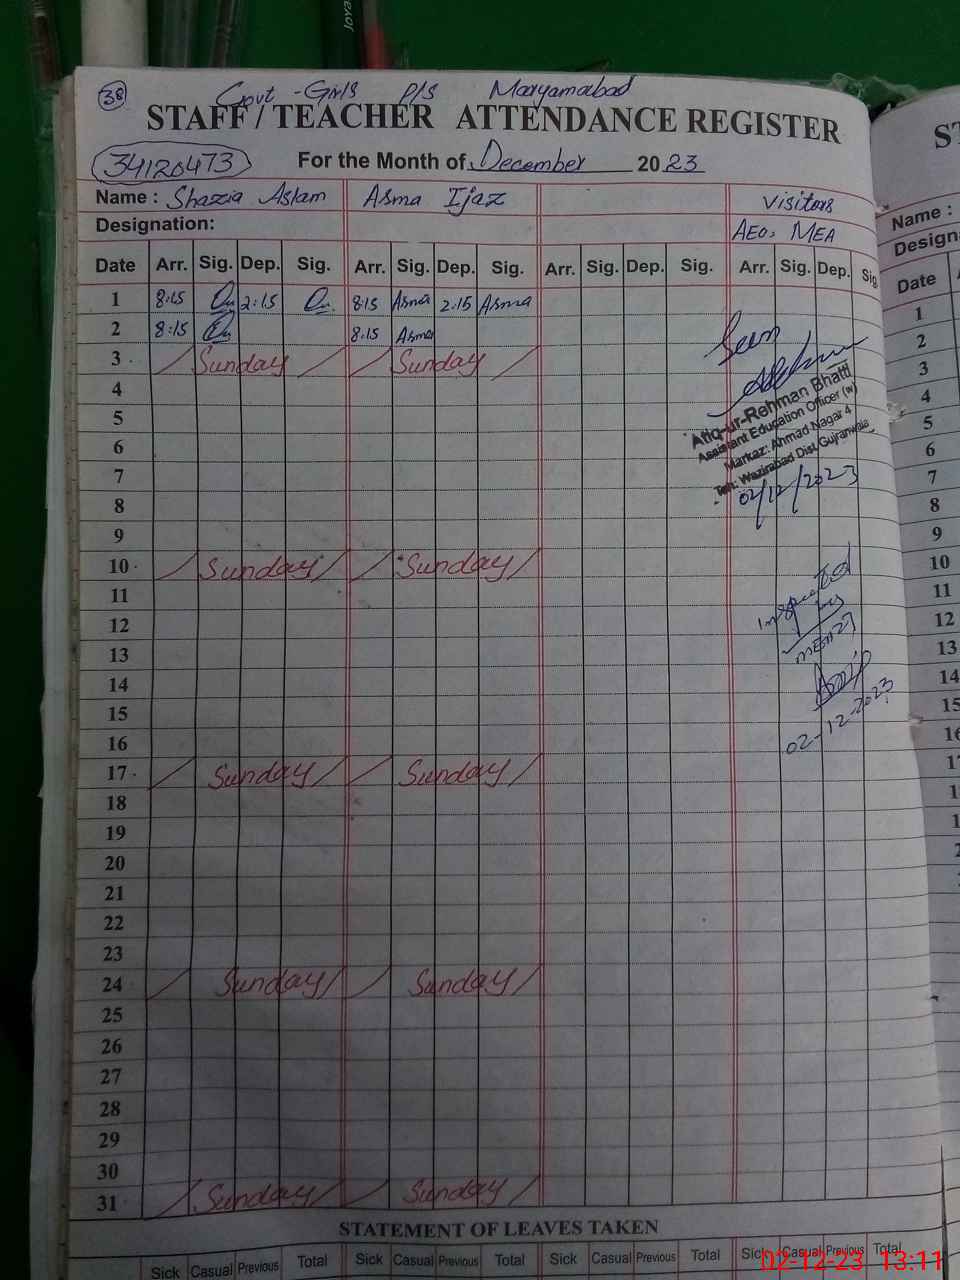 38
Govt - Girls P/S Maryamabad
STAFF / TEACHER ATTENDANCE REGISTER
34120473 For the Month of December 2023
Name : Shazia Aslam Asma Ijaz Visitors
Designation: AEO, MEA
Date Arr. Sig. Dep. Sig. Arr. Sig. Dep. Sig. Arr. Sig. Dep. Sig. Arr. Sig. Dep. Sig
1 8:15 2:15 8:15 Asma 2:15 Asma
2 8:15 8:15 Asma
Seen
3 Sunday Sunday
4
Atiq-ur-Rehman Bhatti
Assistant Education Officer (w)
5
Markaz: Ahmad Nagar 4
6
Teh: Wazirabad Dist. Gujranwala
7
02/12/2023
8
9
10 Sunday Sunday
Inspected
11
by
12
13
14
15
02-12-2023
16
17 Sunday Sunday
18
19
20
21
22
23
24 Sunday Sunday
25
26
27
28
29
30
31 Sunday Sunday
STATEMENT OF LEAVES TAKEN
Sick Casual Previous Total Sick Casual Previous Total Sick Casual Previous Total Sick Casual Previous Total
02-12-23 13:11
ST
Name :
Design
Date
1
2
3
4
5
6
7
8
9
10
11
12
13
14
15
16